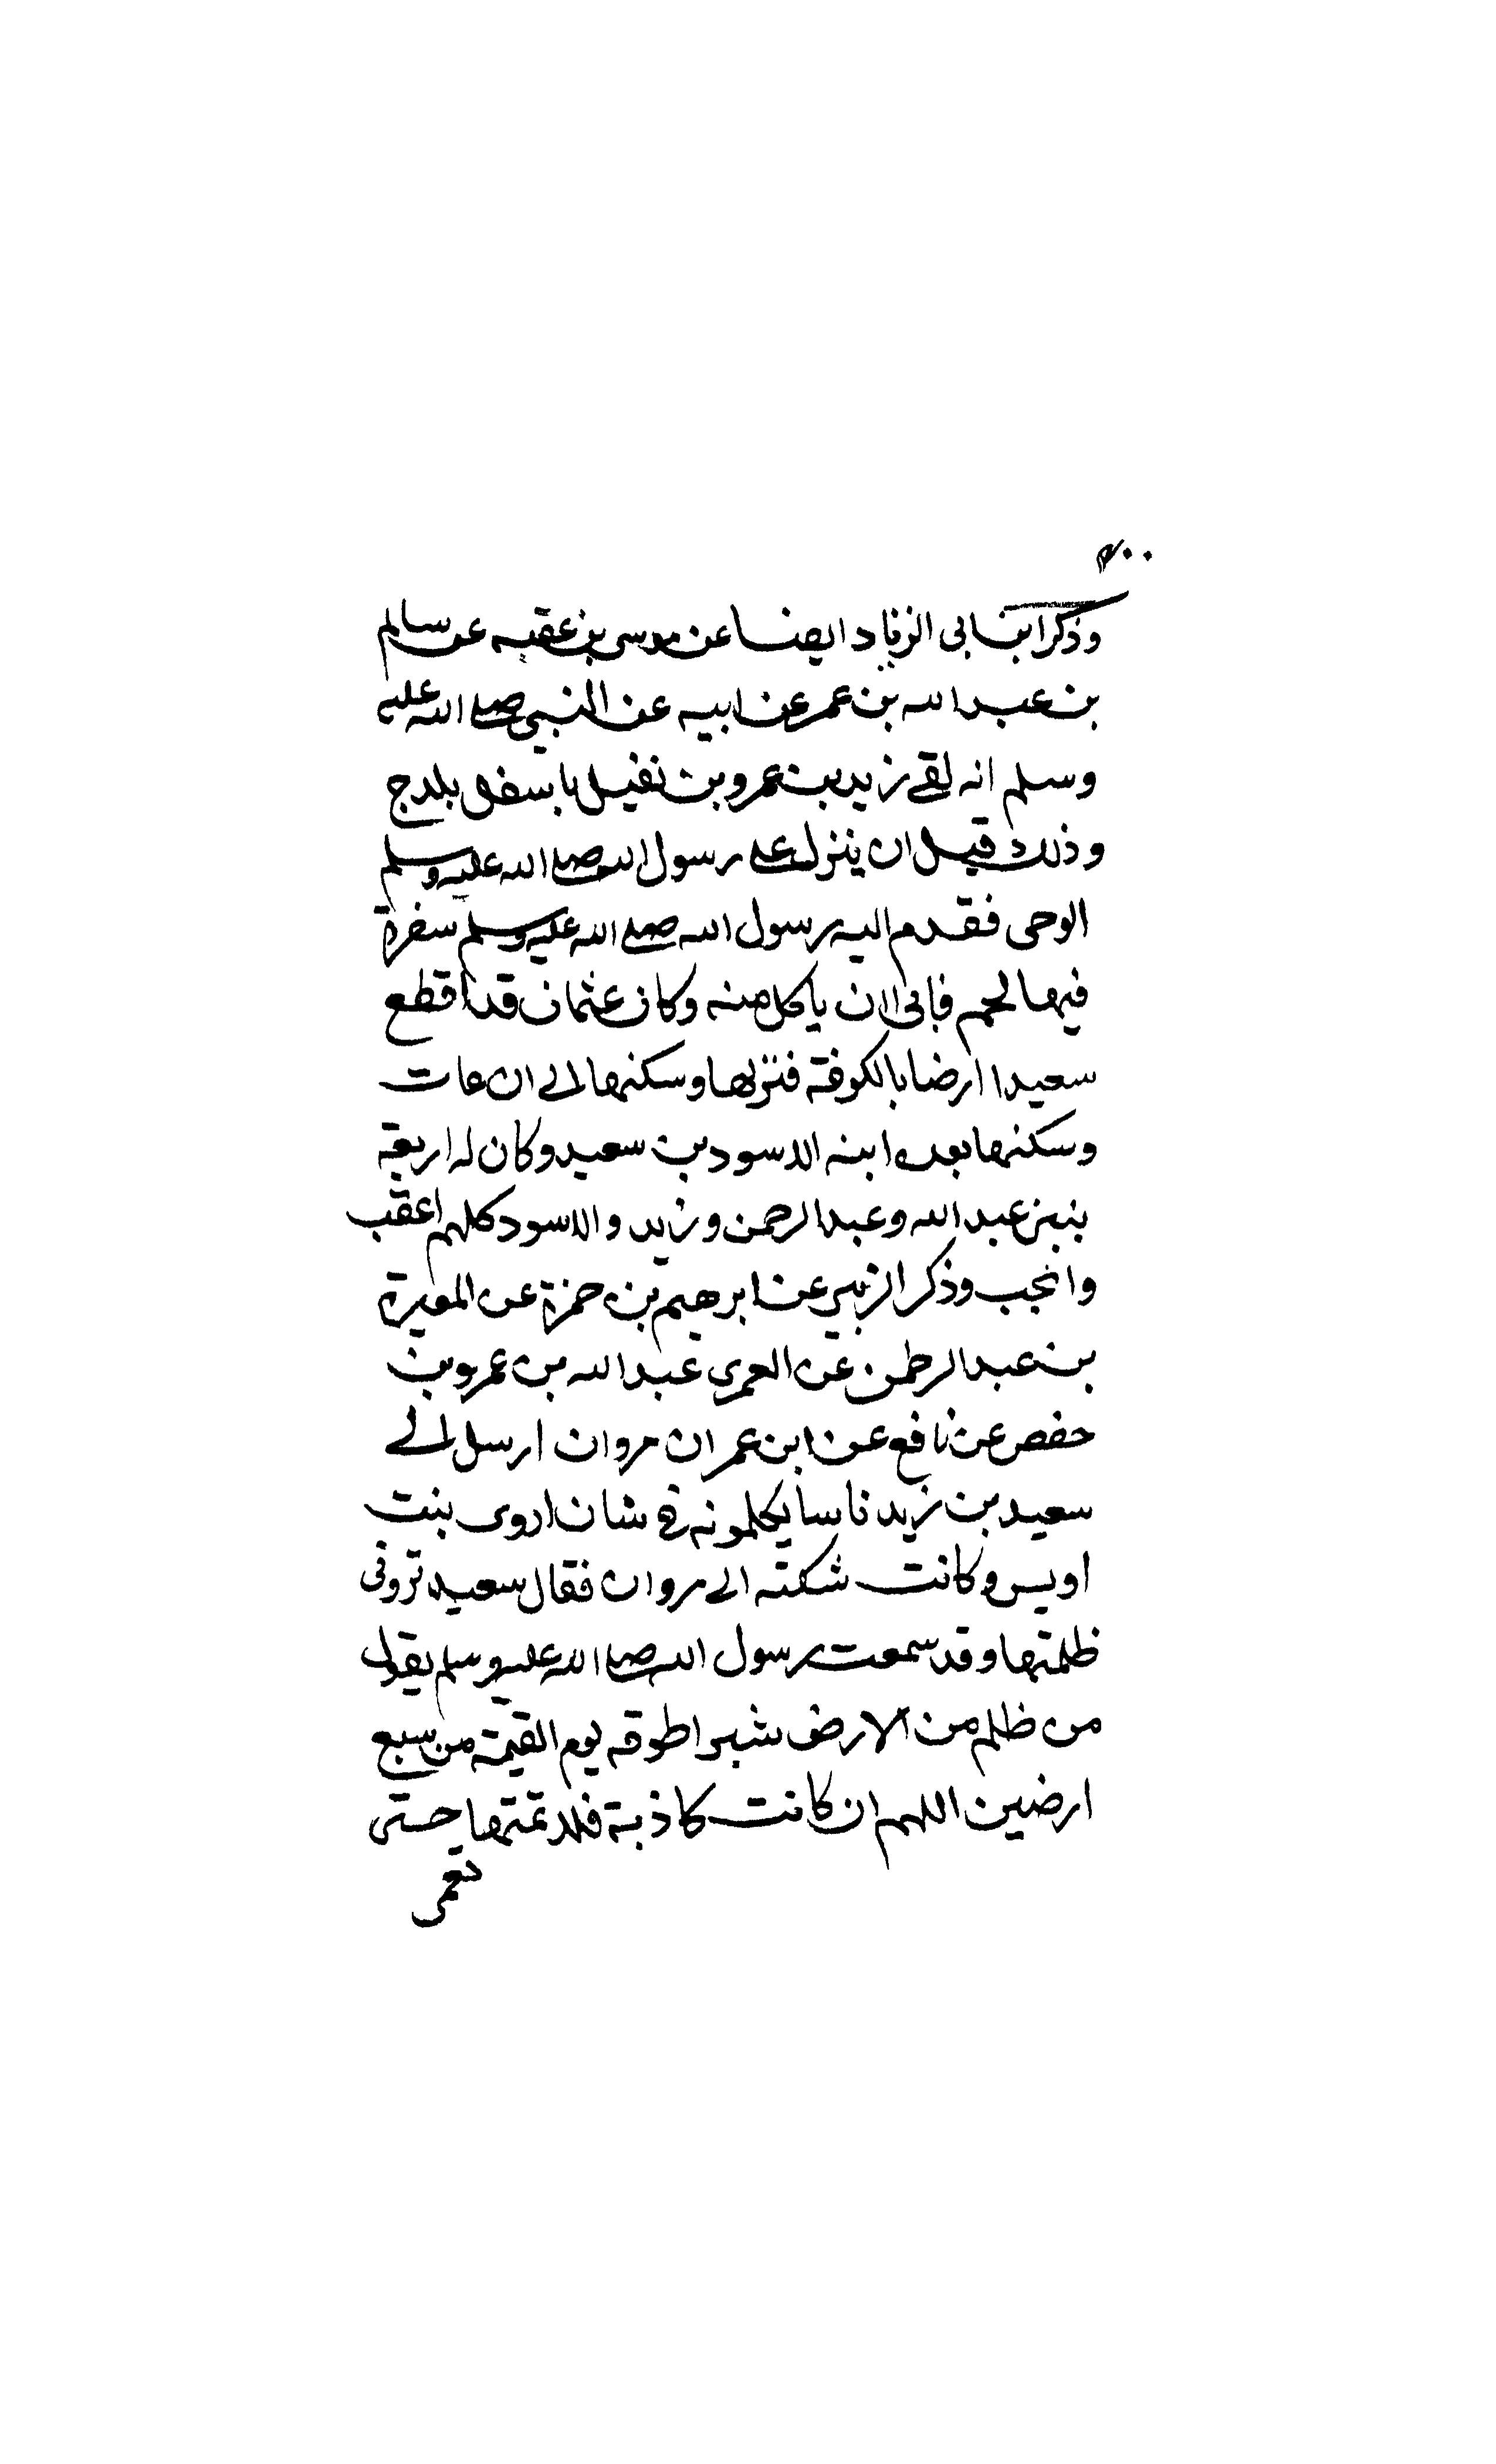 وذكر ابن ابى الزناد ايضا عن موسى بن عقبه عن سالم
بن عبد الله بن عمر عن ابيه عن النبي صلى الله عليه
وسلم انه لقى زيد بن عمرو بن نفيل باسفل بلدح
وذلك قبل ان ينزل على رسول الله صلى الله عليه وسلم
الوحى فقدم اليه رسول الله صلى الله عليه وسلم سفرة
فيها لحم فابى ان ياكل منه وكان عثمان قد اقطع
سعيدا ارضا بالكوفة فنزلها وسكنها الى ان مات
وسكنها بعده ابنه الاسود بن سعيد وكان له اربعة
بنين عبد الله وعبد الرحمن وزيد والاسود كلهم اعقب
وانجب وذكر الزبير عن ابرهيم بن حمزة عن المغيرة
بن عبد الرحمن عن العمرى عبد الله بن عمر بن
حفص عن نافع عن ابن عمر ان مروان ارسل الى
سعيد بن زيد ناسا يكلمونه فى شان اروى بنت
اويس وكانت شكته الى مروان فقال سعيد ترونى
ظلمتها وقد سمعت رسول الله صلى الله عليه وسلم يقول
من ظلم من الارض شبرا طوقه يوم القيمة من سبع
ارضين اللهم ان كانت كاذبة فلا تمتها حتى
تعمى